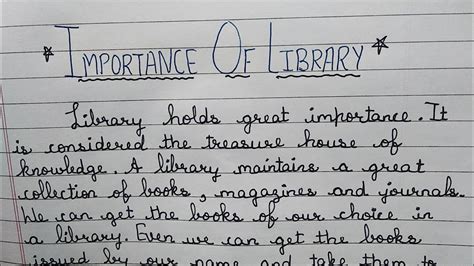 Importance Of Library
Library holds great importance. It
is considered the treasure house of
knowledge. A library maintains a great
collection of books, magazines and journals.
We can get the books of our choice in
a library. Even we can get the books
issued by our name and take them to